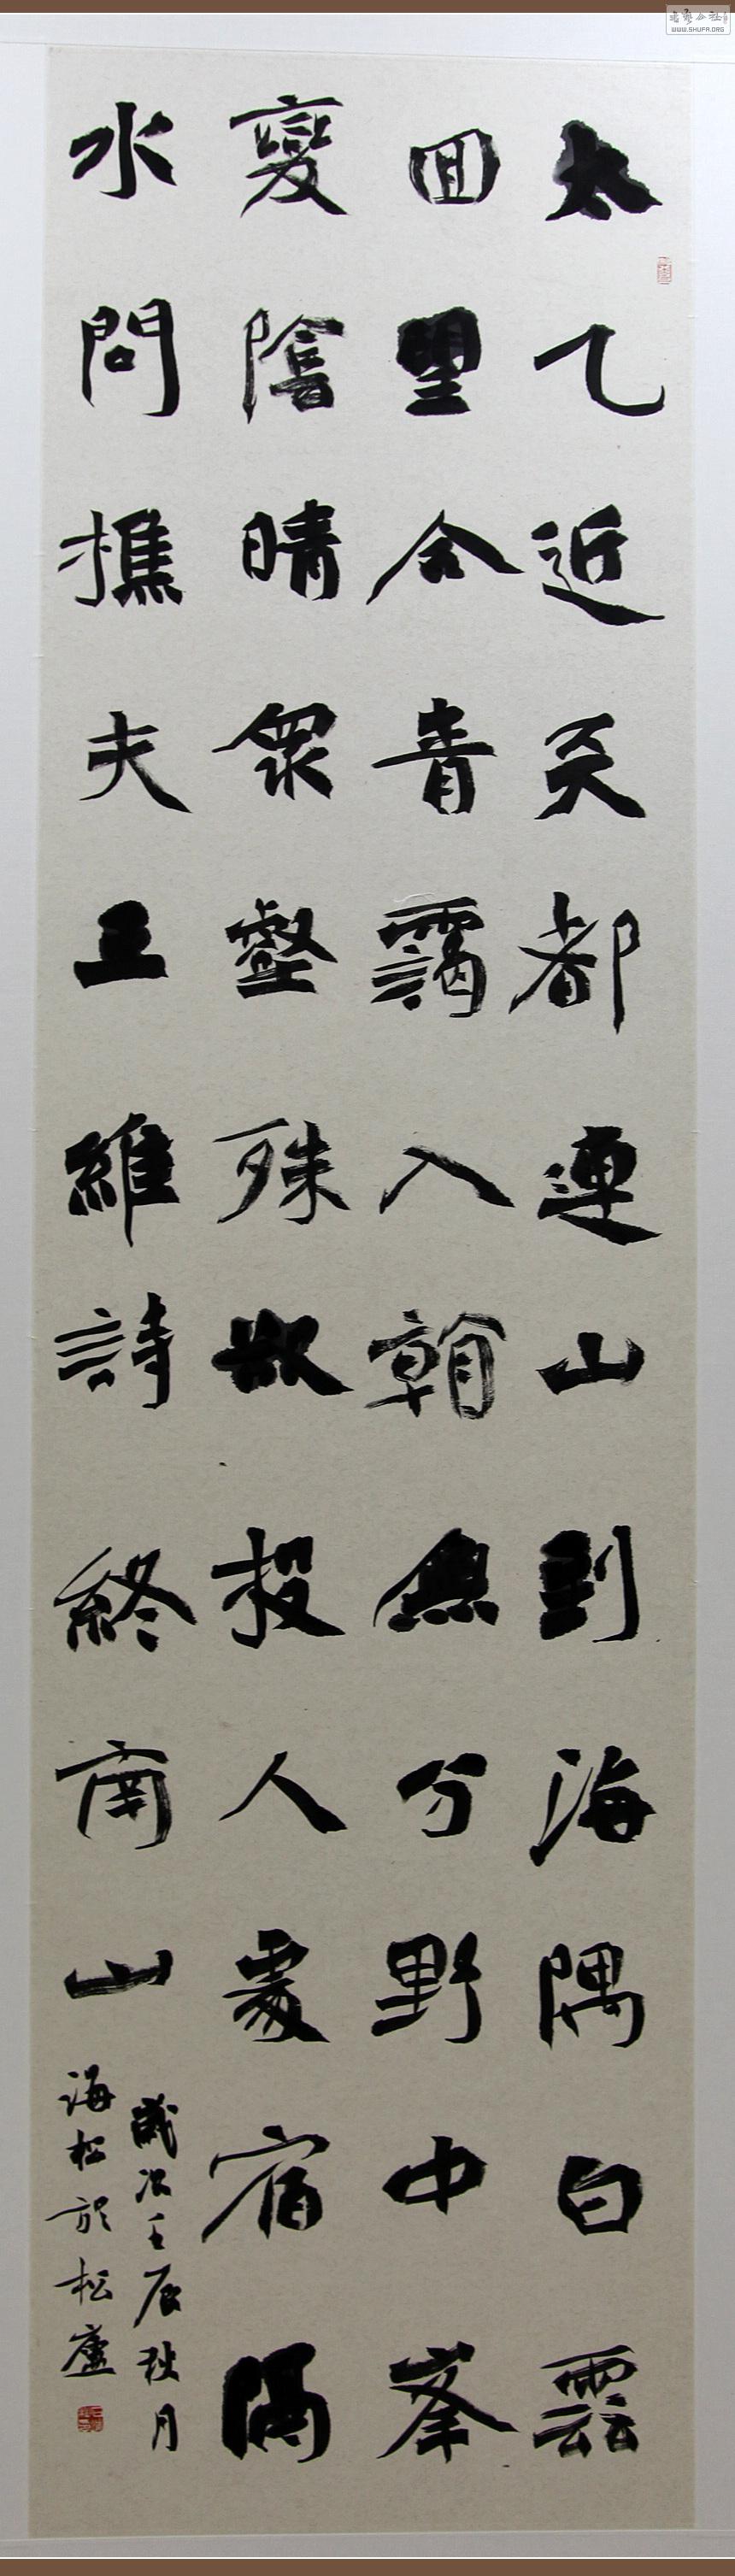 太乙近天都連山到海隅白雲
回望合青靄入看無分野中峯
變陰晴眾壑殊欲投人處宿隔
水問樵夫王維詩終南山
歲次壬辰秋月
海松於松廬
书艺公社
WWW.SHUFA.ORG